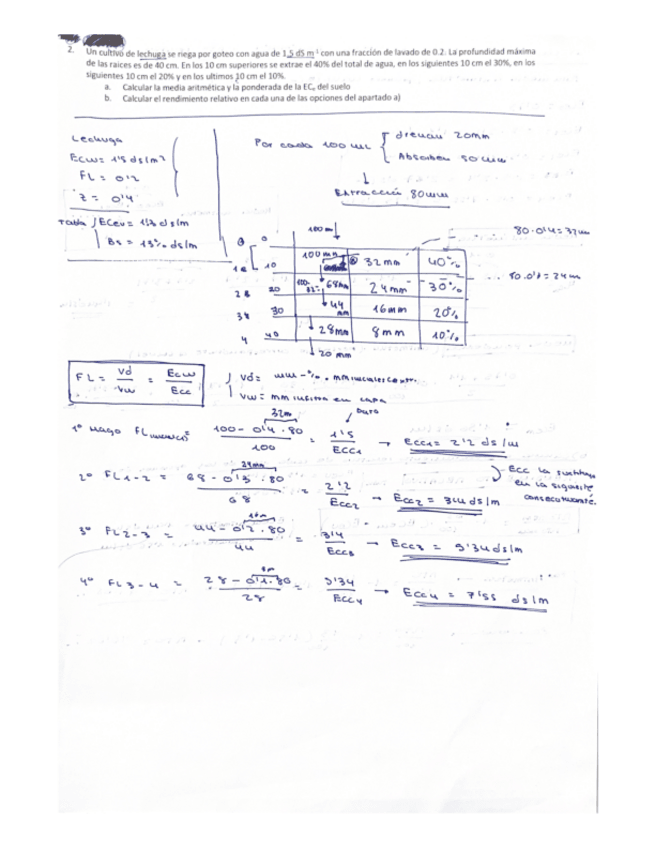 2. Un cultivo de lechuga se riega por goteo con agua de 1,5 dS m⁻¹ con una fracción de lavado de 0.2. La profundidad máxima
de las raíces es de 40 cm. En los 10 cm superiores se extrae el 40% del total de agua, en los siguientes 10 cm el 30%, en los
siguientes 10 cm el 20% y en los ultimos 10 cm el 10%.
a. Calcular la media aritmética y la ponderada de la ECₑ del suelo
b. Calcular el rendimiento relativo en cada una de las opciones del apartado a)
Lechuga
ECw = 1'5 ds/m
FL = 0'2
Z = 0'4
Tabla ECeu = 1'3 ds/m
Bs = 13% ds/m
Por cada 100 mm
drenan 20mm
Absorben 80mm
↓
Extracción 80mm
80.0'4=32mm
100mm↓
0 0
10 100mm 32mm 40%
20 68mm 24mm 30%
30 44 mm 16mm 20%
4 40 28mm 8mm 10%
↓20 mm
FL = Vd/Vw = ECw/Ecc
Vd = mm - % . mm
Vw = mm
Dato
1º FL = 100 - 0'4 . 80 / 100 = 1'5 / ECC1 → ECC1 = 2'2 ds/m
32mm
Ecc la
en la siguiente
2º FL1-2 = 68 - 0'3 . 80 / 68 = 2'2 / ECC2 → ECC2 = 3'4 ds/m
24mm
3º FL2-3 = 44 - 0'2 . 80 / 44 = 3'4 / ECC3 → ECC3 = 5'34 ds/m
16mm
4º FL3-4 = 28 - 0'1 . 80 / 28 = 5'34 / ECC4 → ECC4 = 7'55 ds/m
8m